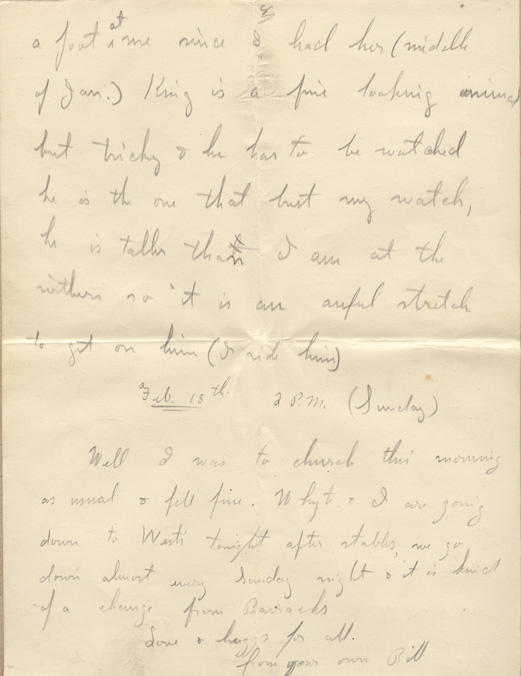 a foot at me since I had her (middle
of Jan.) King is a fine looking animal
but tricky & he has to be watched
he is the one that bust my watch,
he is taller than I am at the
withers so it is an awful stretch
to get on him (I ride him)
Feb. 18th. 2 P.M. (Sunday)
Well I was to church this morning
as usual & fell fine. Whyt. & I are going
down to West's tonight after stables, we go
down almost every Sunday night & it is kind
of a change from Barracks
Love & huggs for all.
from your own Bill